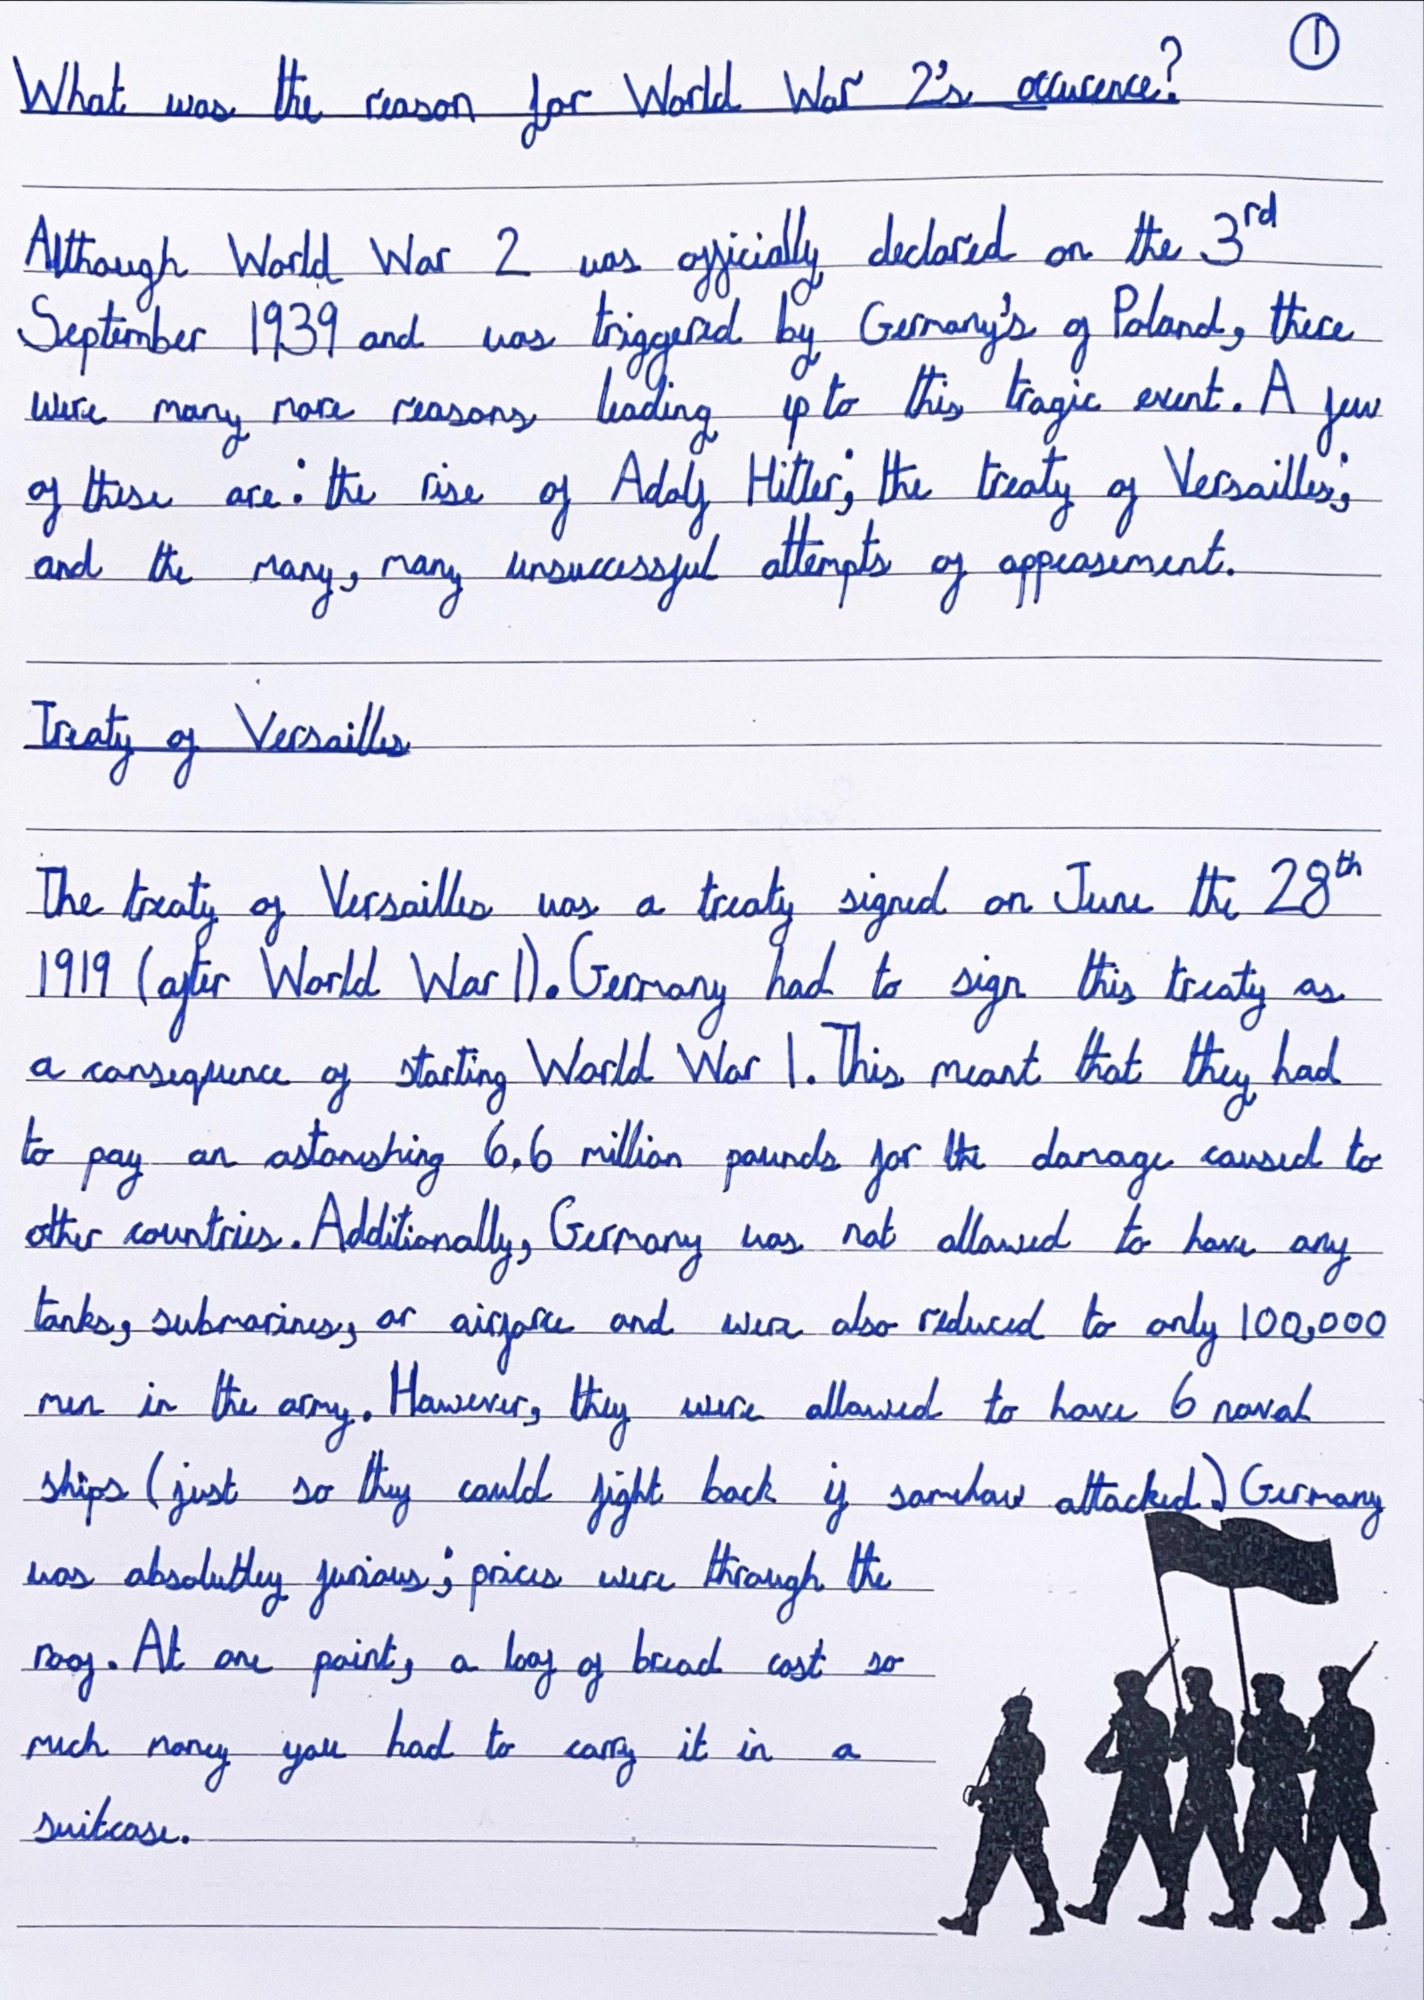 ①
What was the reason for World War 2's occurence?
Although World War 2 was officially declared on the 3rd
September 1939 and was triggered by Germany's of Poland, there
were many more reasons leading up to this tragic event. A few
of these are: the rise of Adolf Hitler; the treaty of Versailles;
and the many, many unsuccessful attempts of appeasement.
Treaty of Versailles
The treaty of Versailles was a treaty signed on June the 28th
1919 (after World War 1). Germany had to sign this treaty as
a consequence of starting World War 1. This meant that they had
to pay an astonishing 6.6 million pounds for the damage caused to
other countries. Additionally, Germany was not allowed to have any
tanks, submarines, or airforce and were also reduced to only 100,000
men in the army. However, they were allowed to have 6 naval
ships (just so they could fight back if somehow attacked.) Germany
was absolutley furious; prices were through the
roof. At one point, a loaf of bread cost so
much money you had to carry it in a
suitcase.